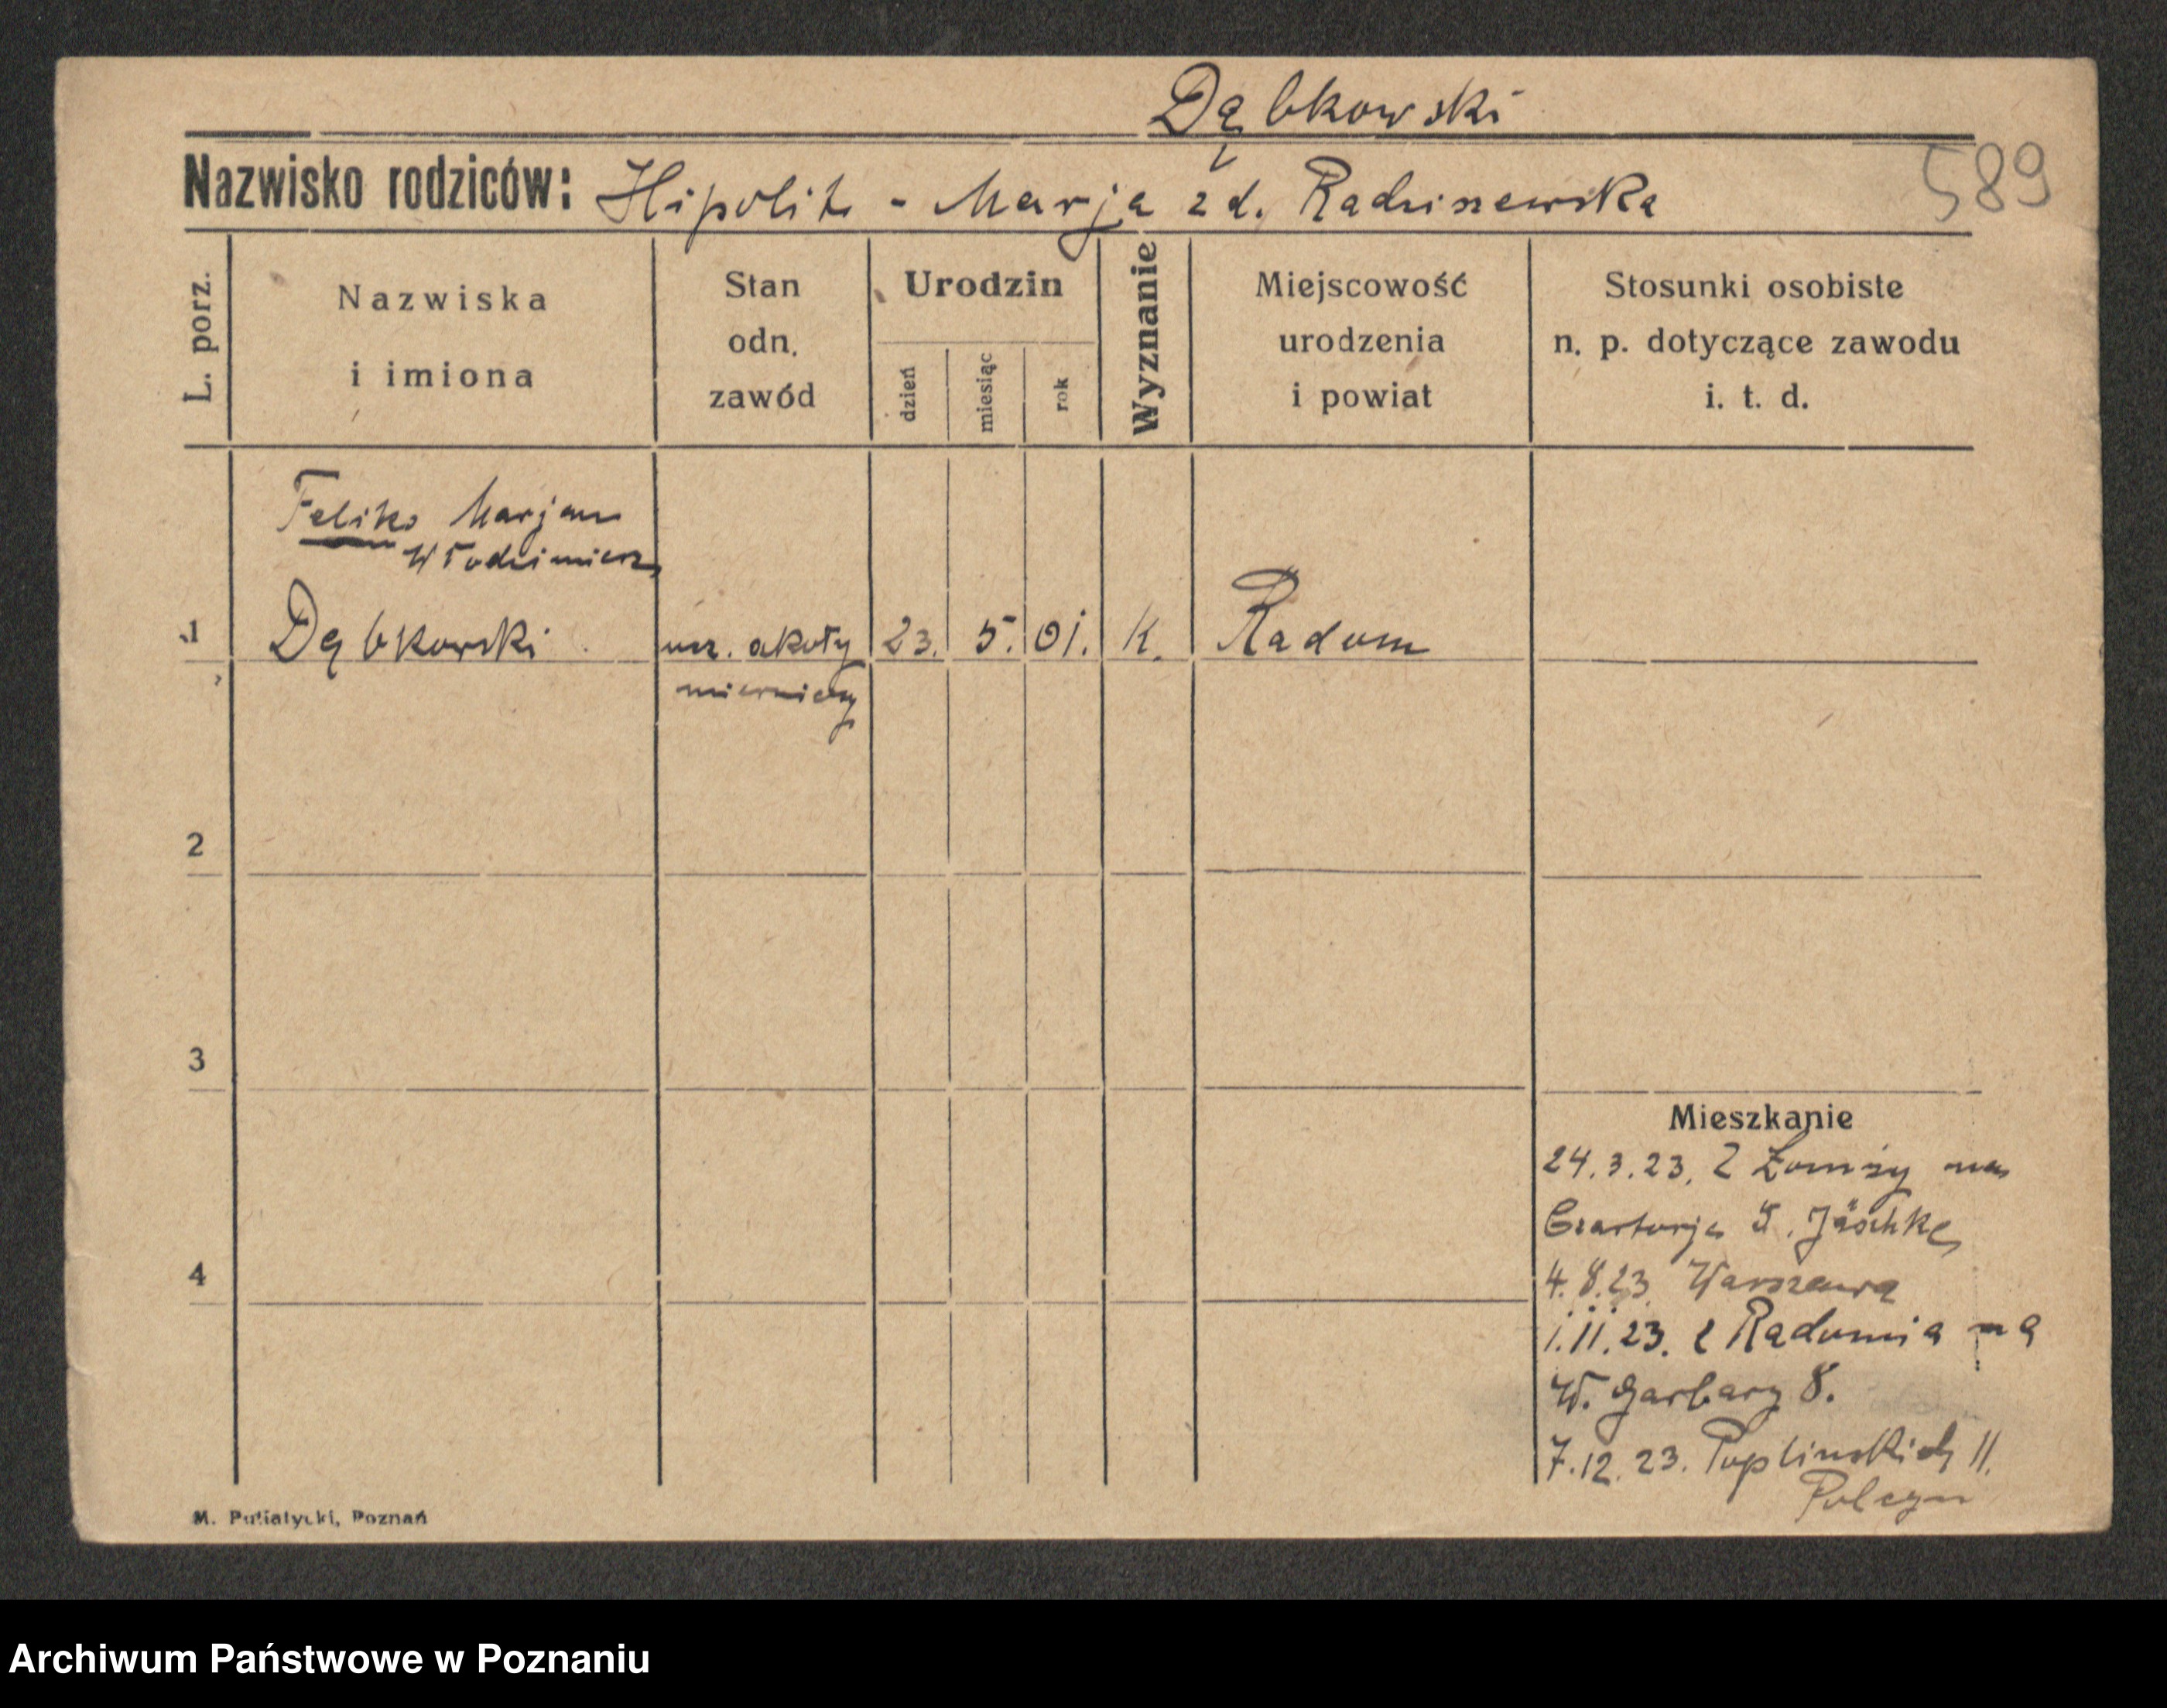 Dąbkowski
Nazwisko rodziców: Hipolit - Marja z d. Radziszewska
589
L. porz.
Nazwiska
i imiona
Stan
odn.
zawód
Urodzin
dzień
miesiąc
rok
Wyznanie
Miejscowość
urodzenia
i powiat
Stosunki osobiste
n. p. dotyczące zawodu
i. t. d.
Feliks Marjan
Włodzimierz
1 Dąbkowski ucz. szkoły 23. 5. 01. K. Radom
mierniczy
2
3
4
Mieszkanie
24.3.23. Z Łomży na
Czartorja 8. Jäschke
4.8.23 Warszawa
1.11.23. z Radomia na
W. Garbary 8.
7.12.23. Poplińskich 11.
Polczyn
M. Putiatycki, Poznań
Archiwum Państwowe w Poznaniu